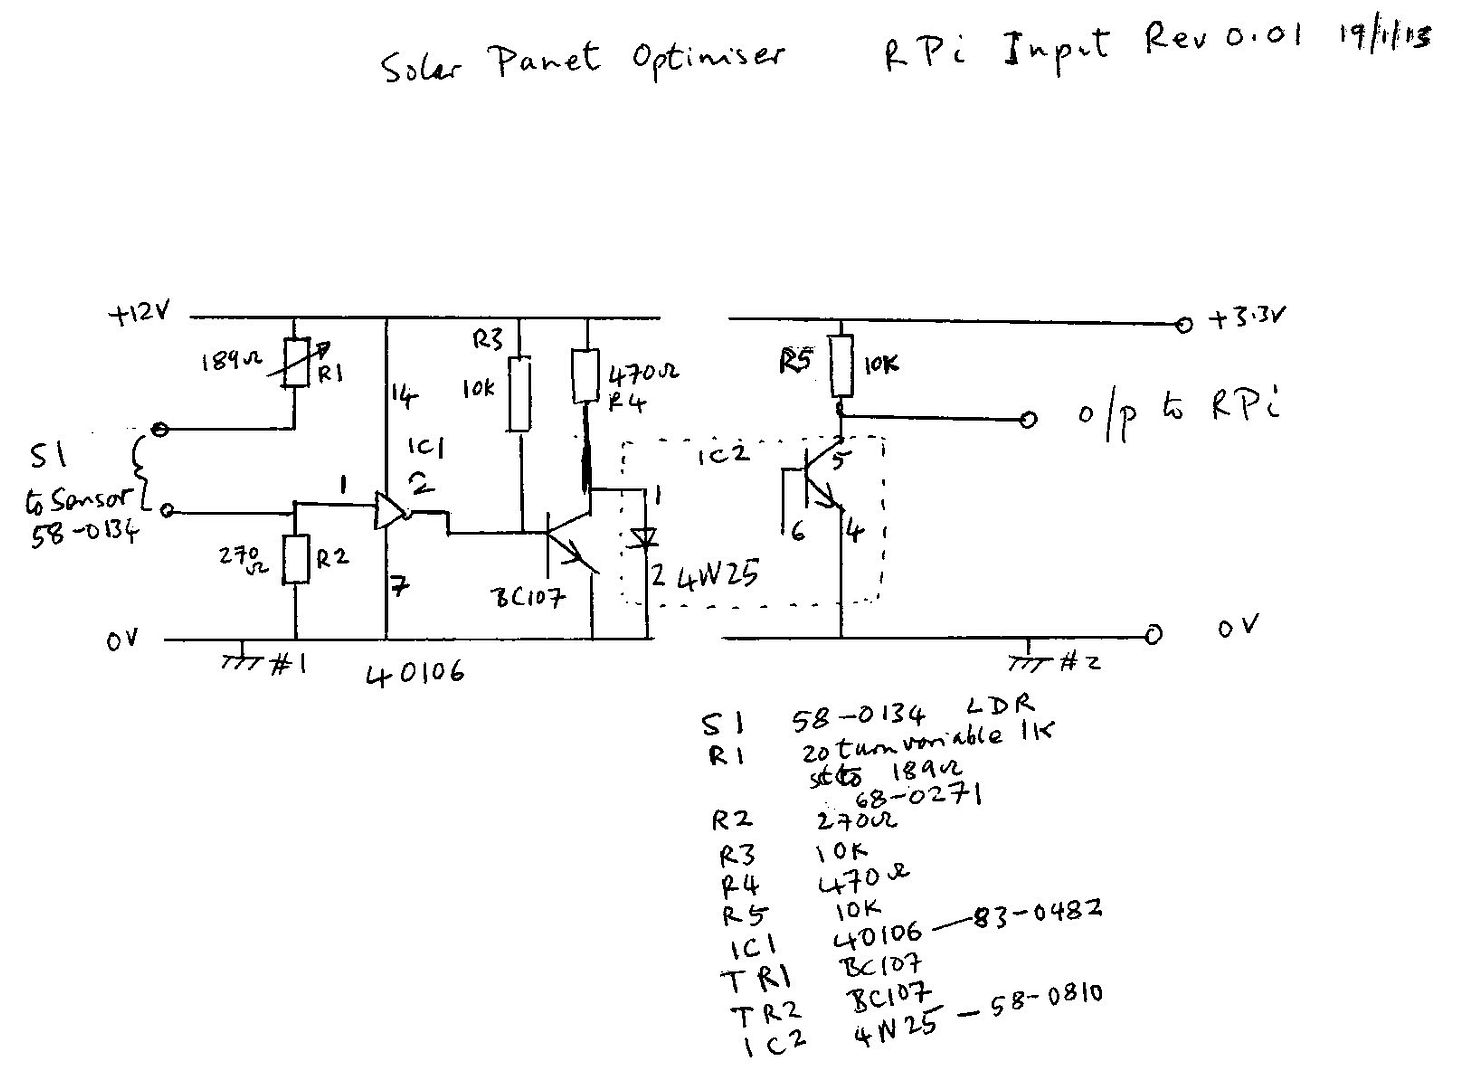 Solar Panel Optimiser RPi Input Rev 0.01 19/1/13
+12V
189Ω
R1
S1
to Sensor
58-0134
270
Ω
R2
0V
#1
14
IC1
1
2
7
40106
R3
10K
470Ω
R4
BC107
IC2
1
2
4N25
R5
10K
5
6
4
+3.3V
o/p to RPi
0V
#2
S1 58-0134 LDR
R1 20 turn variable 1K
set to 189Ω
68-0271
R2 270Ω
R3 10K
R4 470Ω
R5 10K
IC1 40106 — 83-0482
TR1 BC107
TR2 BC107
IC2 4N25 — 58-0810